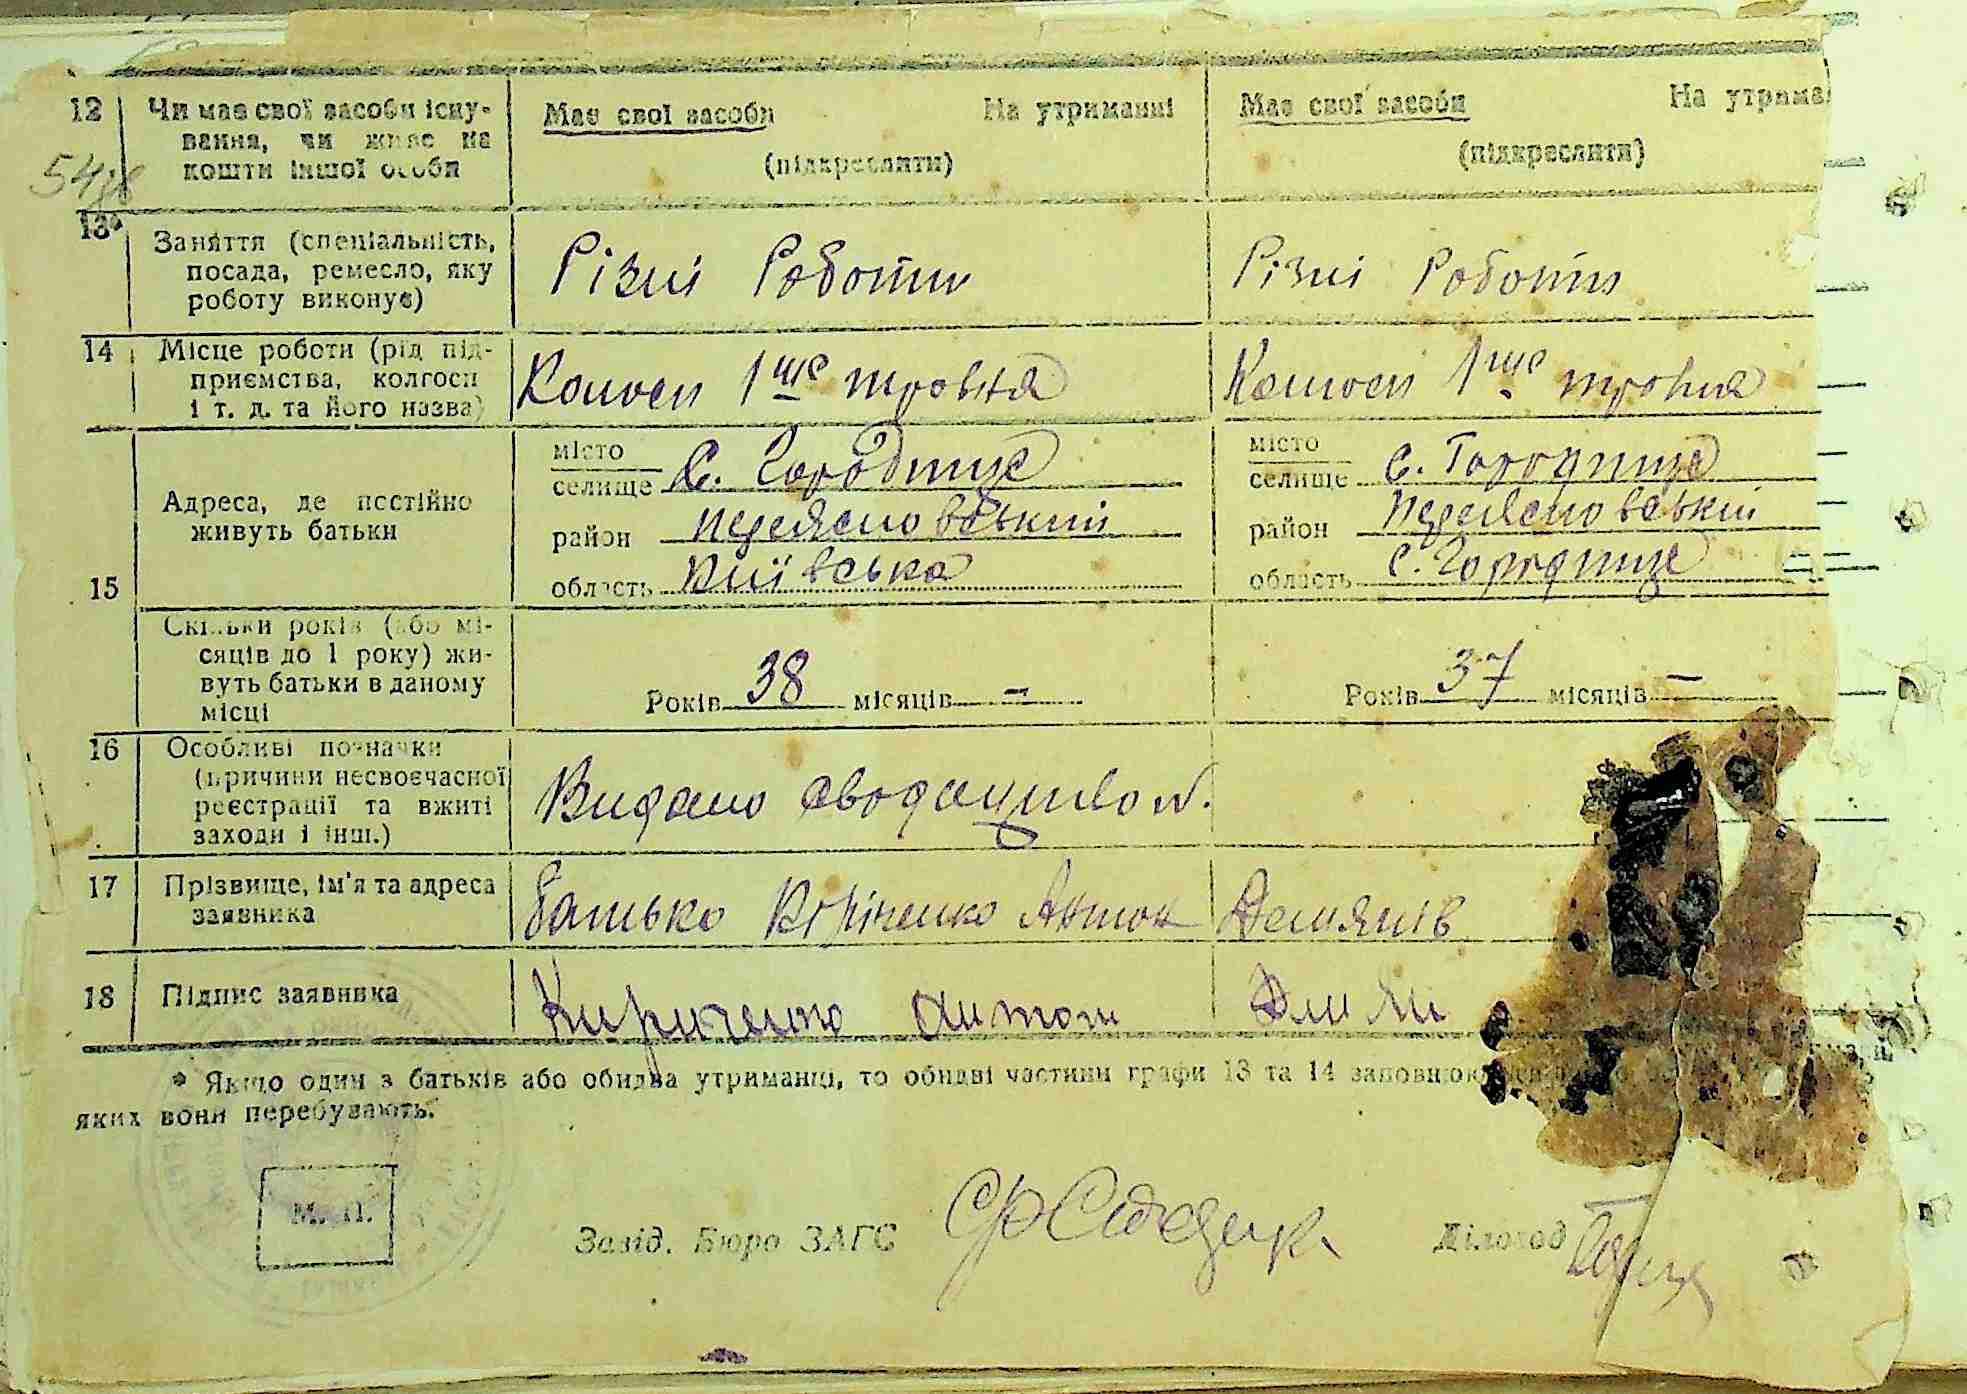 12 Чи має свої засоби існу- Має свої засоби На утриманні Має свої засоби На утрима
вання, чи живе на (підкреслити) (підкреслити)
кошти іншої особи
54
13* Заняття (спеціальність, Різні Роботи Різні Роботи
посада, ремесло, яку
роботу виконує)
14 Місце роботи (рід під- Колгосп 1ше травня Колгосп 1ше травня
приємства, колгосп
і т. д. та його назва)
15 Адреса, де постійно місто с. Городище місто с. Городище
живуть батьки селище селище
район Переяславський район Переяславський
область Київська область с. Городище
Скільки років (або мі-
сяців до 1 року) жи-
вуть батьки в даному Років 38 місяців — Років 37 місяців —
місці
16 Особливі позначки
(причини несвоєчасної Видано
реєстрації та вжиті
заходи і інш.)
17 Прізвище, ім'я та адреса батько Кіріченко Антон Демянів
заявника
18 Підпис заявника Кириченко Антон
* Якщо один з батьків або обидва утриманці, то обидві частини графи 13 та 14
яких вони перебувають.
М. П.
Завід. Бюро ЗАГС Діловод